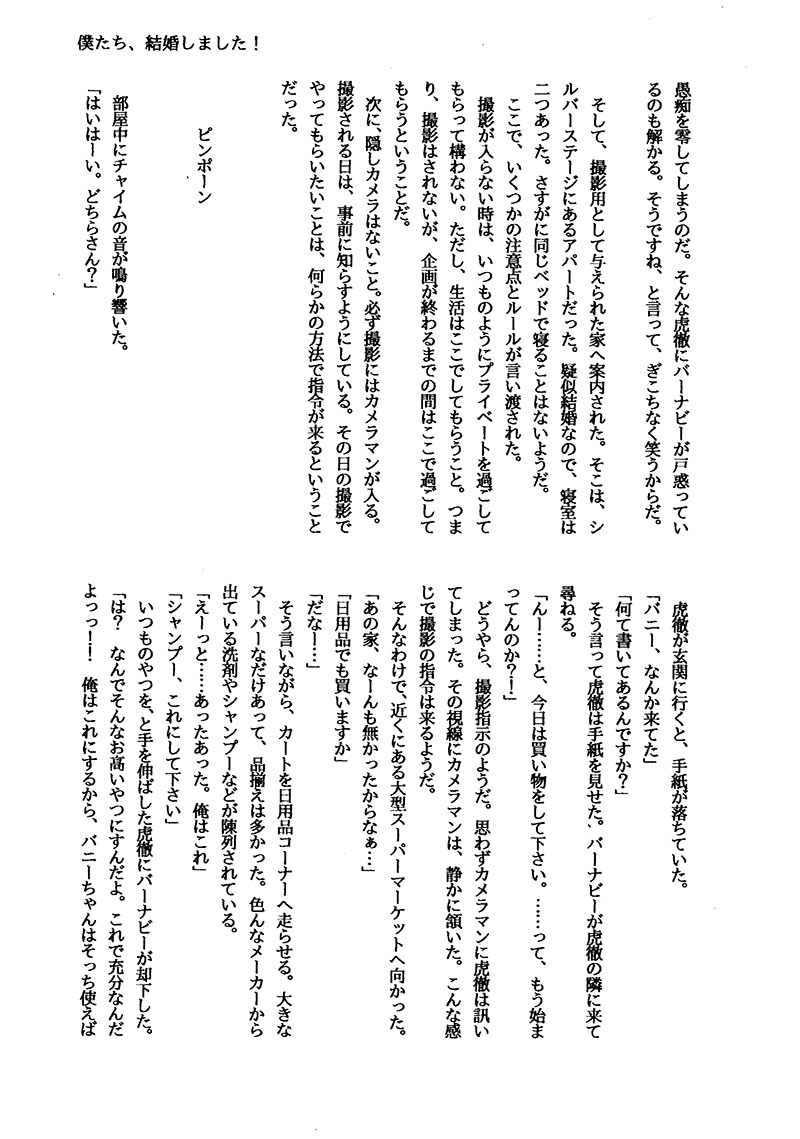 僕たち、結婚しました！
愚痴を零してしまうのだ。そんな虎徹にバーナビーが戸惑ってい
るのも解かる。そうですね、と言って、ぎこちなく笑うからだ。
そして、撮影用として与えられた家へ案内された。そこは、シ
ルバーステージにあるアパートだった。疑似結婚なので、寝室は
二つあった。さすがに同じベッドで寝ることはないようだ。
ここで、いくつかの注意点とルールが言い渡された。
撮影が入らない時は、いつものようにプライベートを過ごして
もらって構わない。ただし、生活はここでしてもらうこと。つま
り、撮影はされないが、企画が終わるまでの間はここで過ごして
もらうということだ。
次に、隠しカメラはないこと。必ず撮影にはカメラマンが入る。
撮影される日は、事前に知らすようにしている。その日の撮影で
やってもらいたいことは、何らかの方法で指令が来るということ
だった。
ピンポーン
部屋中にチャイムの音が鳴り響いた。
「はいはーい。どちらさん？」
虎徹が玄関に行くと、手紙が落ちていた。
「バニー、なんか来てた」
「何て書いてあるんですか？」
そう言って虎徹は手紙を見せた。バーナビーが虎徹の隣に来て
尋ねる。
「んー……と、今日は買い物をして下さい。……って、もう始ま
ってんのか？！」
どうやら、撮影指示のようだ。思わずカメラマンに虎徹は訊い
てしまった。その視線にカメラマンは、静かに頷いた。こんな感
じで撮影の指令は来るようだ。
そんなわけで、近くにある大型スーパーマーケットへ向かった。
「あの家、なーんも無かったからなぁ…」
「日用品でも買いますか」
「だなー…」
そう言いながら、カートを日用品コーナーへ走らせる。大きな
スーパーなだけあって、品揃えは多かった。色んなメーカーから
出ている洗剤やシャンプーなどが陳列されている。
「えーっと……あったあった。俺はこれ」
「シャンプー、これにして下さい」
いつものやつを、と手を伸ばした虎徹にバーナビーが却下した。
「は？　なんでそんなお高いやつにすんだよ。これで充分なんだ
よっっ！！　俺はこれにするから、バニーちゃんはそっち使えば